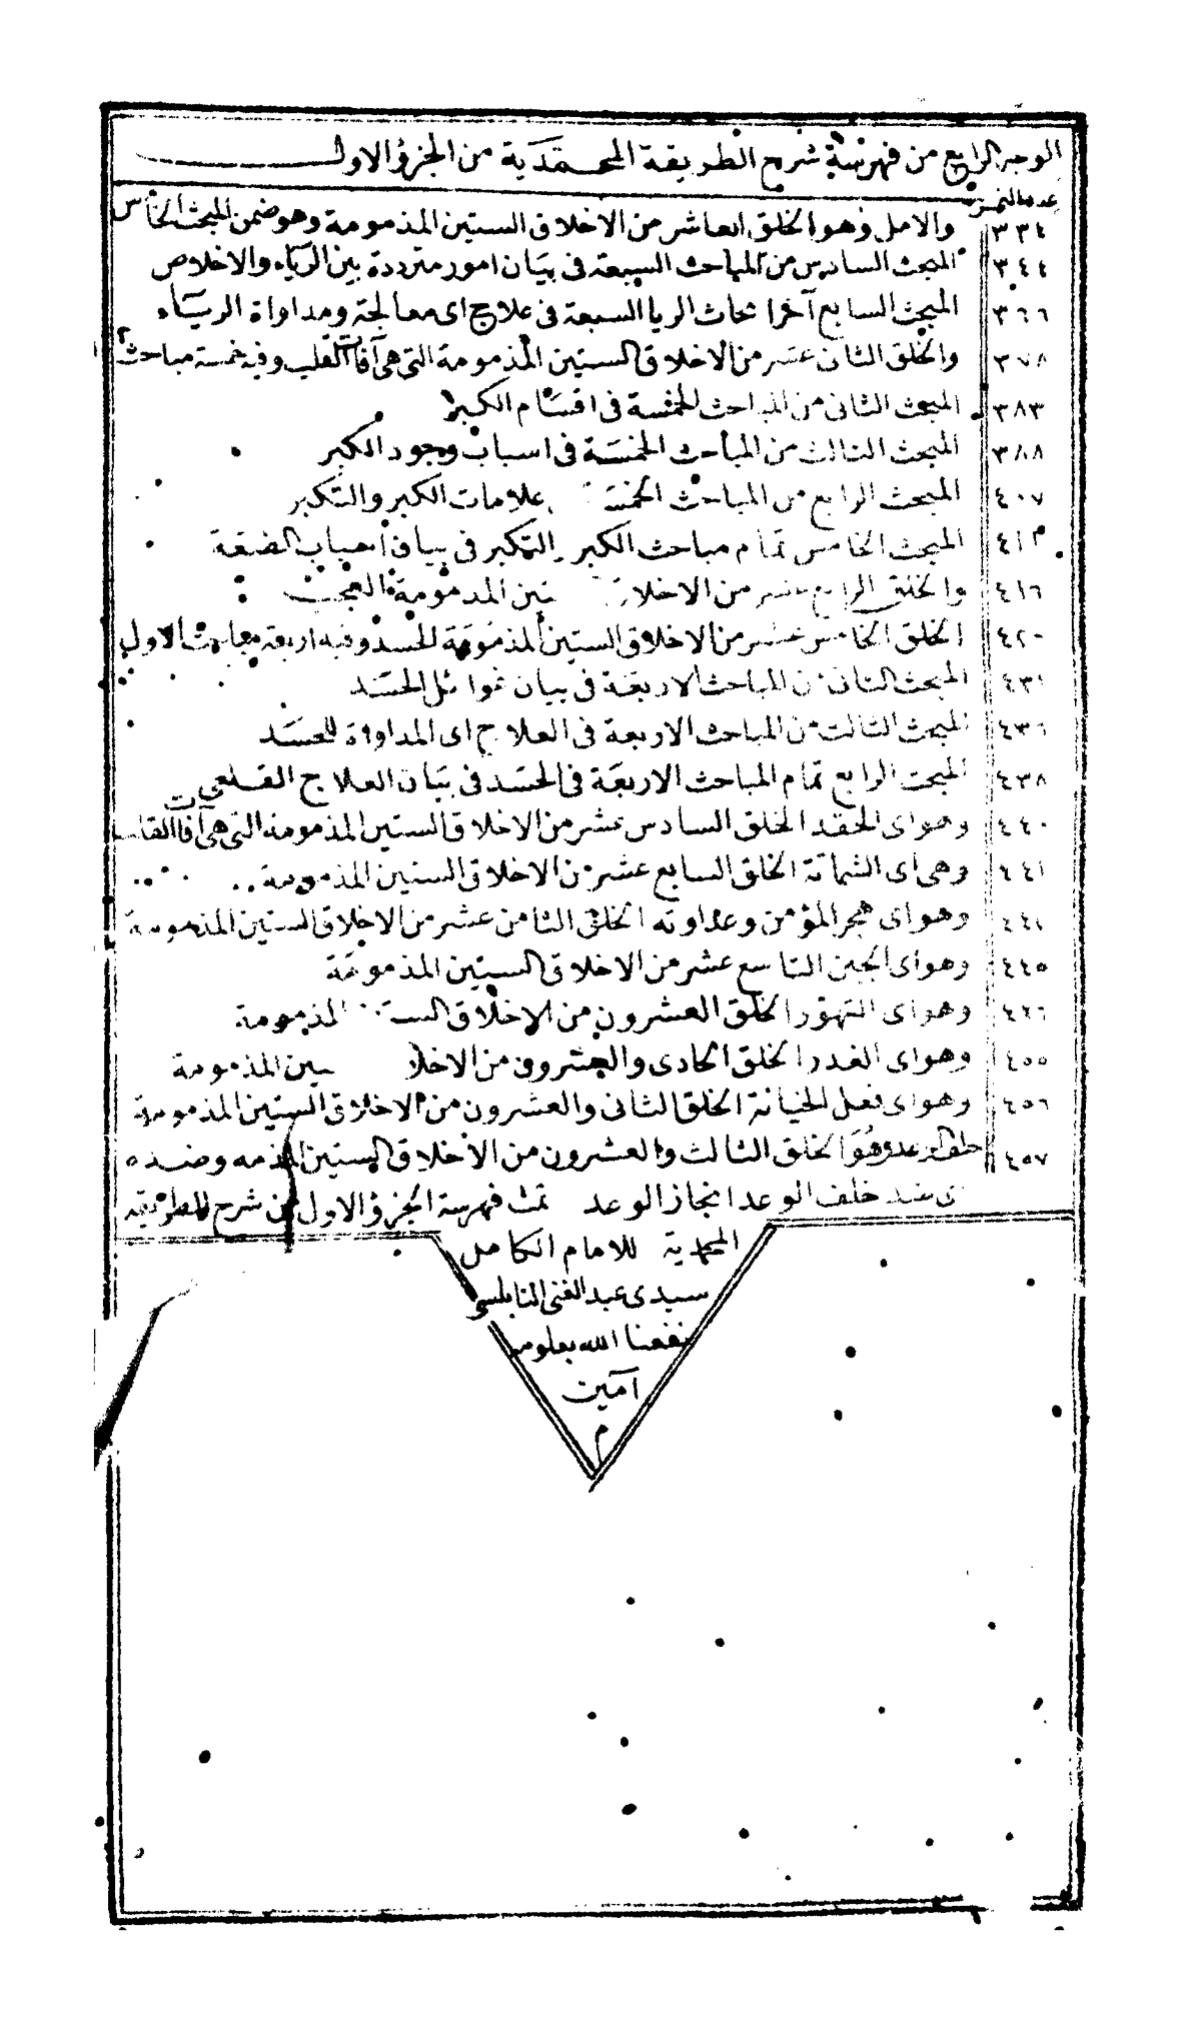 الوجه الرابع من فهرسة شرح الطريقة المحمدية من الجزؤ الاول
عدد النمر
٣٣٤ والامل وهو الخلق العاشر من الاخلاق الستين المذمومة وهو ضمن المبحث الخامس
٣٤٤ المبحث السادس من المباحث السبعة فى بيان امور مترددة بين الرياء والاخلاص
٣٦٦ المبحث السابع آخر ابحاث الريا السبعة فى علاج اى معالجة ومداواة الرياء
٣٧٨ والخلق الثانى عشر من الاخلاق الستين المذمومة التى هى آفات القلب وفيه خمسة مباحث
٣٨٣ المبحث الثانى من المباحث الخمسة فى اقسام الكبر
٣٨٨ المبحث الثالث من المباحث الخمسة فى اسباب وجود الكبر
٤٠٧ المبحث الرابع من المباحث الخمسة علامات الكبر والتكبر
٤١٣ المبحث الخامس تمام مباحث الكبر والتكبر فى بيان اسباب الضعة
٤١٦ والخلق الرابع عشر من الاخلاق المذمومة العجب
٤٢٠ الخلق الخامس عشر من الاخلاق الستين المذمومة الحسد وفيه اربعة مباحث الاول
٤٣١ المبحث الثانى من المباحث الاربعة فى بيان غوائل الحسد
٤٣٦ المبحث الثالث من المباحث الاربعة فى العلاج اى المداواة للحسد
٤٣٨ المبحث الرابع تمام المباحث الاربعة فى الحسد فى بيان العلاج القلعى
٤٤٠ وهو اى الحقد الخلق السادس عشر من الاخلاق الستين المذمومة التى هى آفات القلب
٤٤١ وهى اى الشماتة الخلق السابع عشر من الاخلاق الستين المذمومة
٤٤١ وهو اى هجر المؤمن وعداوته الخلق الثامن عشر من الاخلاق الستين المذمومة
٤٤٥ وهو اى الجبن التاسع عشر من الاخلاق الستين المذمومة
٤٤٦ وهو اى التهور الخلق العشرون من الاخلاق المذمومة
٤٥٥ وهو اى الغدر الخلق الحادى والعشرون من الاخلا المذمومة
٤٥٦ وهو اى فعل الخيانة الخلق الثانى والعشرون من الاخلاق الستين المذمومة
٤٥٧ خلف الوعد وهو الخلق الثالث والعشرون من الاخلاق الستين المذمومه وضده
اى ضد خلف الوعد انجاز الوعد تمت فهرسة الجزؤ الاول من شرح الطريقة
المحمدية للامام الكامل
سيدى عبد الغنى النابلسى
نفعنا الله بعلومه
آمين
م